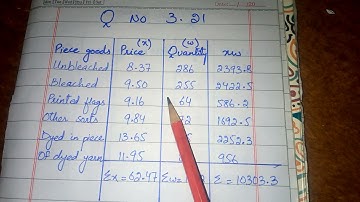 Q No 3.21
(x) (w)
Piece goods Price Quantity xw
Unbleached 8.37 286 2393.8
Bleached 9.50 255 2422.5
Printed flags 9.16 64 586.2
Other sorts 9.84 1692.5
Dyed in piece 13.65 2252.3
Of dyed yarn 11.95 956
Σx = 62.47 Σw= Σ = 10303.3